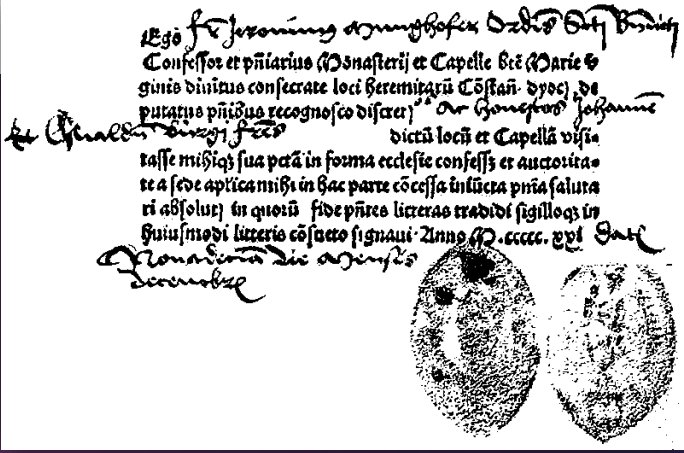 Ego fr̄ Jeronimus Munghofer Ordīs Scti Bn̄dicti
Confessor et pn̄iarius Monasterij et Capelle btē Marie v
ginis diuinitus consecrate loci heremitarū Cōstan̄. dyoc̄. de
putatus pn̄ibus recognosco discret ac honestos Johannē
et fres dictū locū et Capellā visi-
tasse mihiqȝ sua pctā in forma ecclesie confessȝ et auctorita-
te a sede aplica mihi in hac parte cōcessa iniūcta pn̄ia saluta
ri absolutȝ in quorū fide pn̄tes litteras tradidi sigilloqȝ in
huiusmodi litteris cōsueto signaui. Anno M.ccccc.xxj Dat
die Mensis
decembr